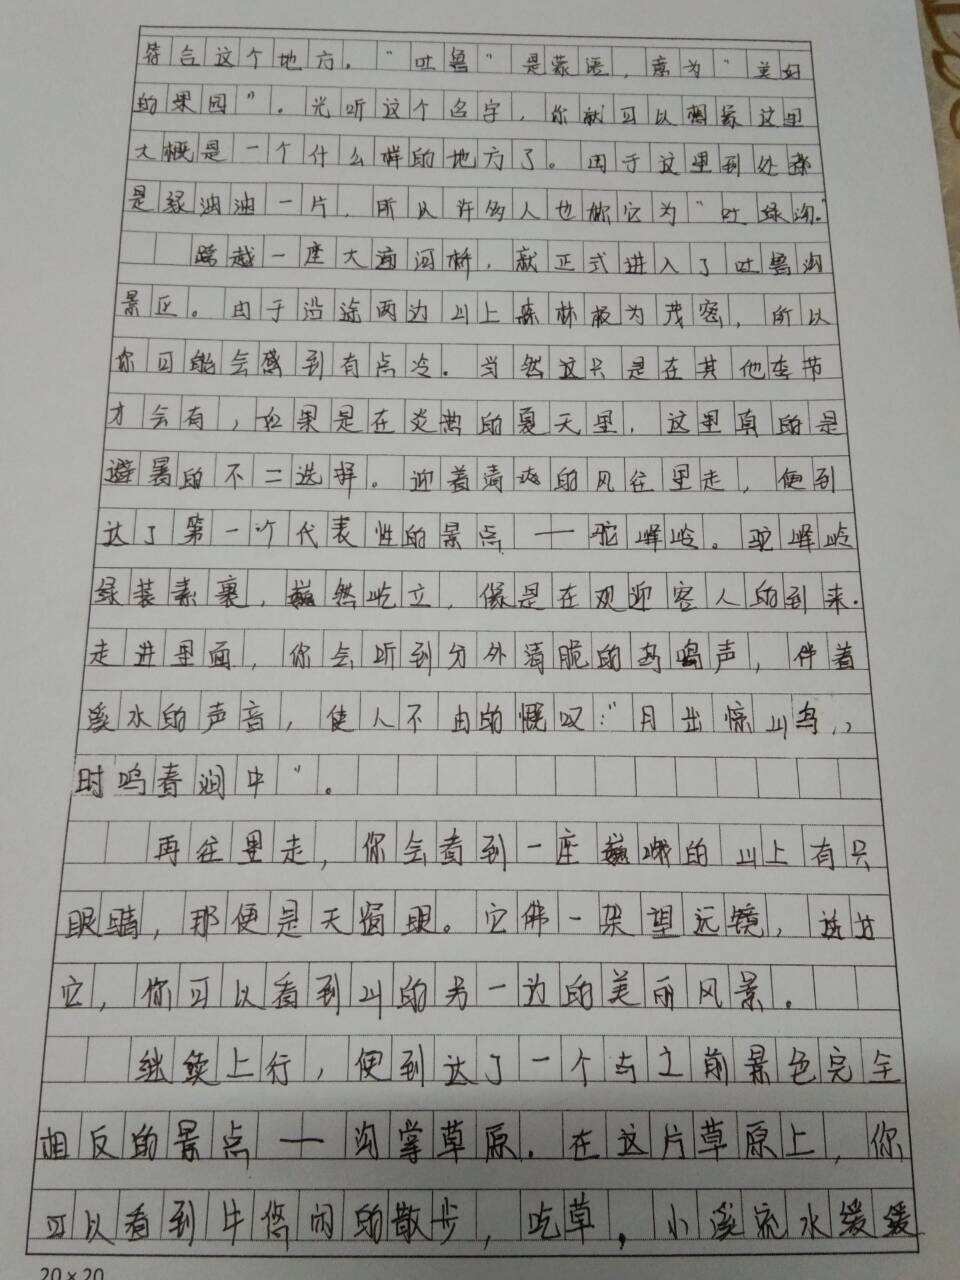 符合这个地方。“吐鲁”是蒙语，意为“美好
的果园”。光听这个名字，你就可以想象这里
大概是一个什么样的地方了。由于这里到处都
是绿油油一片，所以许多人也称它为“吐绿沟。”
跨越一座大通河桥，就正式进入了吐鲁沟
景区。由于沿途两边山上森林极为茂密，所以
你可能会感到有点冷。当然这只是在其他季节
才会有，如果是在炎热的夏天里，这里真的是
避暑的不二选择。迎着清爽的风往里走，便到
达了第一个代表性的景点——驼峰岭。驼峰岭
绿装素裹，巍然屹立，像是在欢迎客人的到来.
走进里面，你会听到分外清脆的鸟鸣声，伴着
溪水的声音，使人不由的慨叹：“月出惊山鸟，
时鸣春涧中”。
再往里走，你会看到一座巍峨的山上有只
眼睛，那便是天窗眼。它佛一架望远镜，透过
它，你可以看到山的另一边的美丽风景。
继续上行，便到达了一个与之前景色完全
相反的景点——沟掌草原。在这片草原上，你
可以看到牛悠闲的散步，吃草，小溪流水缓缓
20×20